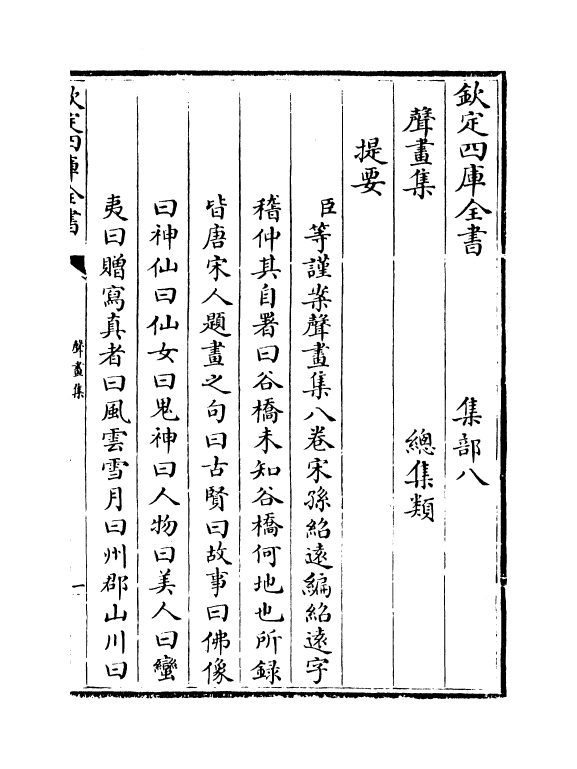 欽定四庫全書 集部八
聲畫集 總集類
提要
臣等謹案聲畫集八卷宋孫紹遠編紹遠字
稽仲其自署曰谷橋未知谷橋何地也所録
皆唐宋人題畫之句曰古賢曰故事曰佛像
曰神仙曰仙女曰鬼神曰人物曰美人曰蠻
夷曰贈寫真者曰風雲雪月曰州郡山川曰
欽定四庫全書 聲畫集 一